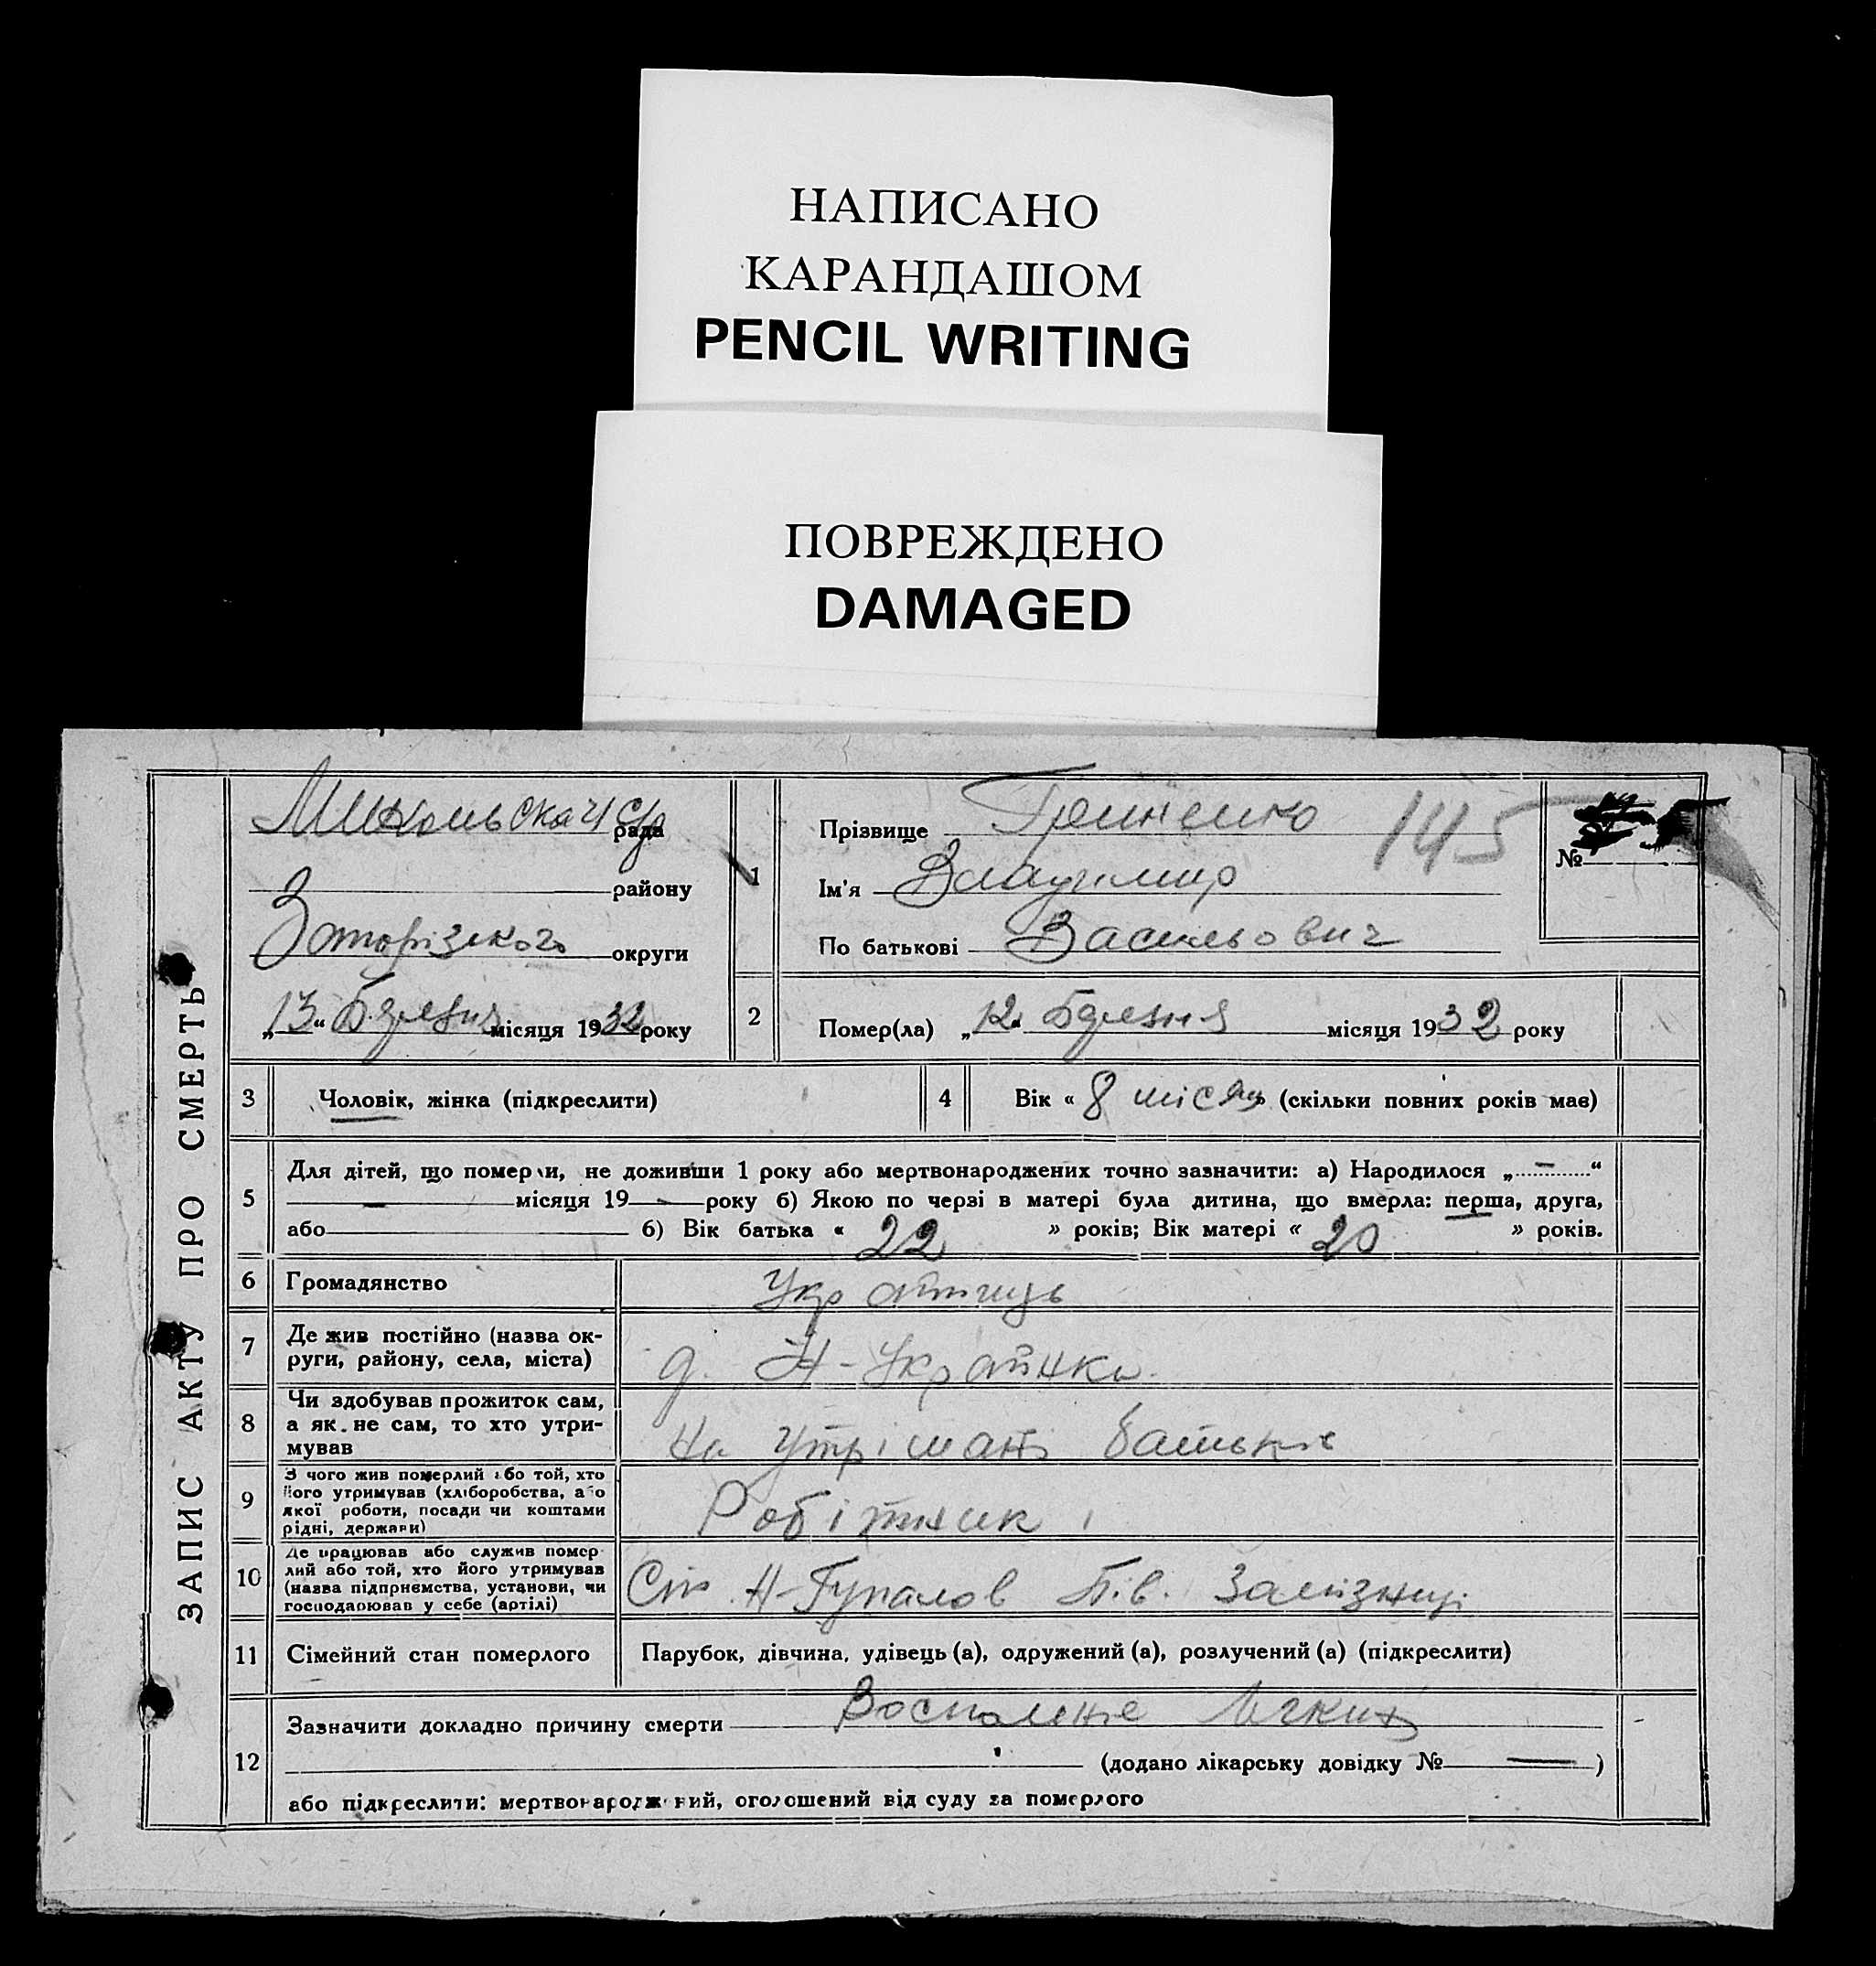 НАПИСАНО
КАРАНДАШОМ
PENCIL WRITING
ПОВРЕЖДЕНО
DAMAGED
ЗАПИС АКТУ ПРО СМЕРТЬ
рада
району
Запорізького округи
„13“ Березня місяця 1932 року
1
Прізвище Гриненко 145
№
Ім'я Владимир
По батькові Васильович
2 Помер(ла) „12“ Березня місяця 1932 року
3 Чоловік, жінка (підкреслити)
4 Вік « 8 місяц (скільки повних років має)
5 Для дітей, що померли, не доживши 1 року або мертвонароджених точно зазначити: а) Народилося „ — “
— місяця 19 — року б) Якою по черзі в матері була дитина, що вмерла: перша, друга,
або б) Вік батька « 22 » років; Вік матері « 20 » років.
6 Громадянство Українець
7 Де жив постійно (назва ок-
руги, району, села, міста)
д. Н-Українка
8 Чи здобував прожиток сам,
а як не сам, то хто утри-
мував
На утрімані батьків
9 З чого жив померлий або той, хто
його утримував (хліборобства, або
якої роботи, посади чи коштами
рідні, держави)
Робітник
10 Де працював або служив помер-
лий або той, хто його утримував
(назва підприємства, установи, чи
господарював у себе (артілі)
Н-Гупалов Пів. Залізниці
11 Сімейний стан померлого Парубок, дівчина, удівець (а), одружений (а), розлучений (а) (підкреслити)
12 Зазначити докладно причину смерти Воспаленіе Легких
(додано лікарську довідку № — )
або підкреслити: мертвонароджений, оголошений від суду за померлого